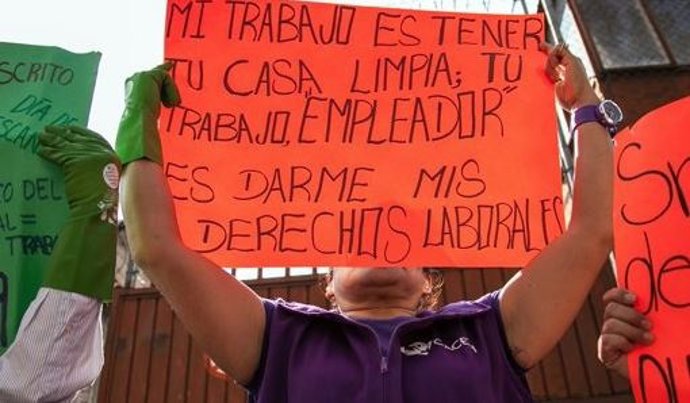 MI TRABAJO ES TENER
TU CASA LIMPIA; TU
TRABAJO, "EMPLEADOR"
ES DARME MIS
DERECHOS LABORALES
SCRITO
DÍA DE
SCAN
O DEL
AL =
TRAB
Sr
de